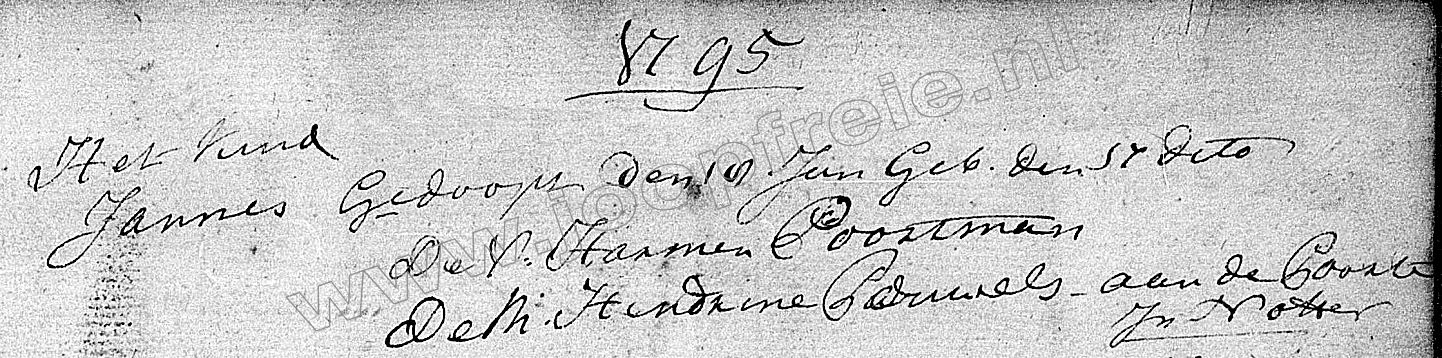 1795
Het kind
Jannes Gedoopt den 18 Jan Geb. den 17 deto
De V. Harmen Poortman
De M. Hendrine Pauwels - aan de Poorte
In Notter
www.joopfreie.nl